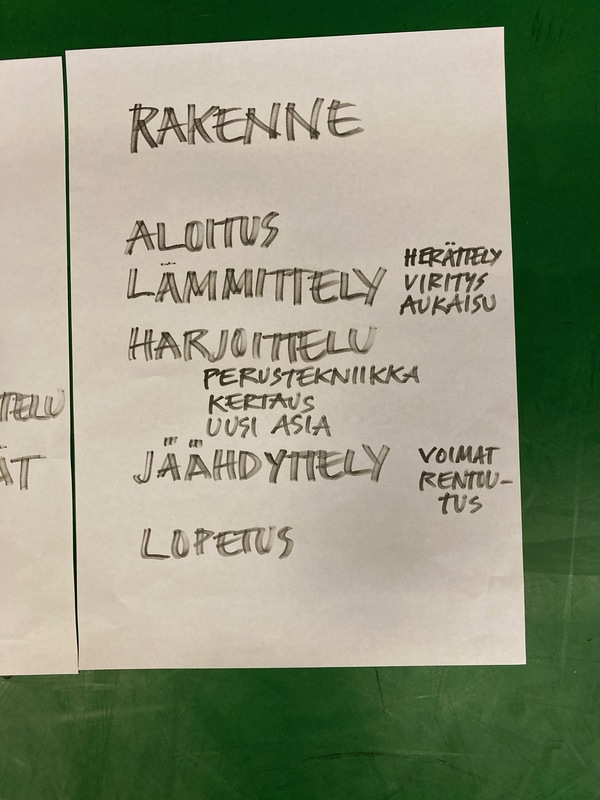 RAKENNE
ALOITUS
LÄMMITTELY
HERÄTTELY
VIRITYS
AUKAISU
HARJOITTELU
PERUSTEKNIIKKA
KERTAUS
UUSI ASIA
JÄÄHDYTTELY
VOIMAT
RENTOU-
TUS
LOPETUS